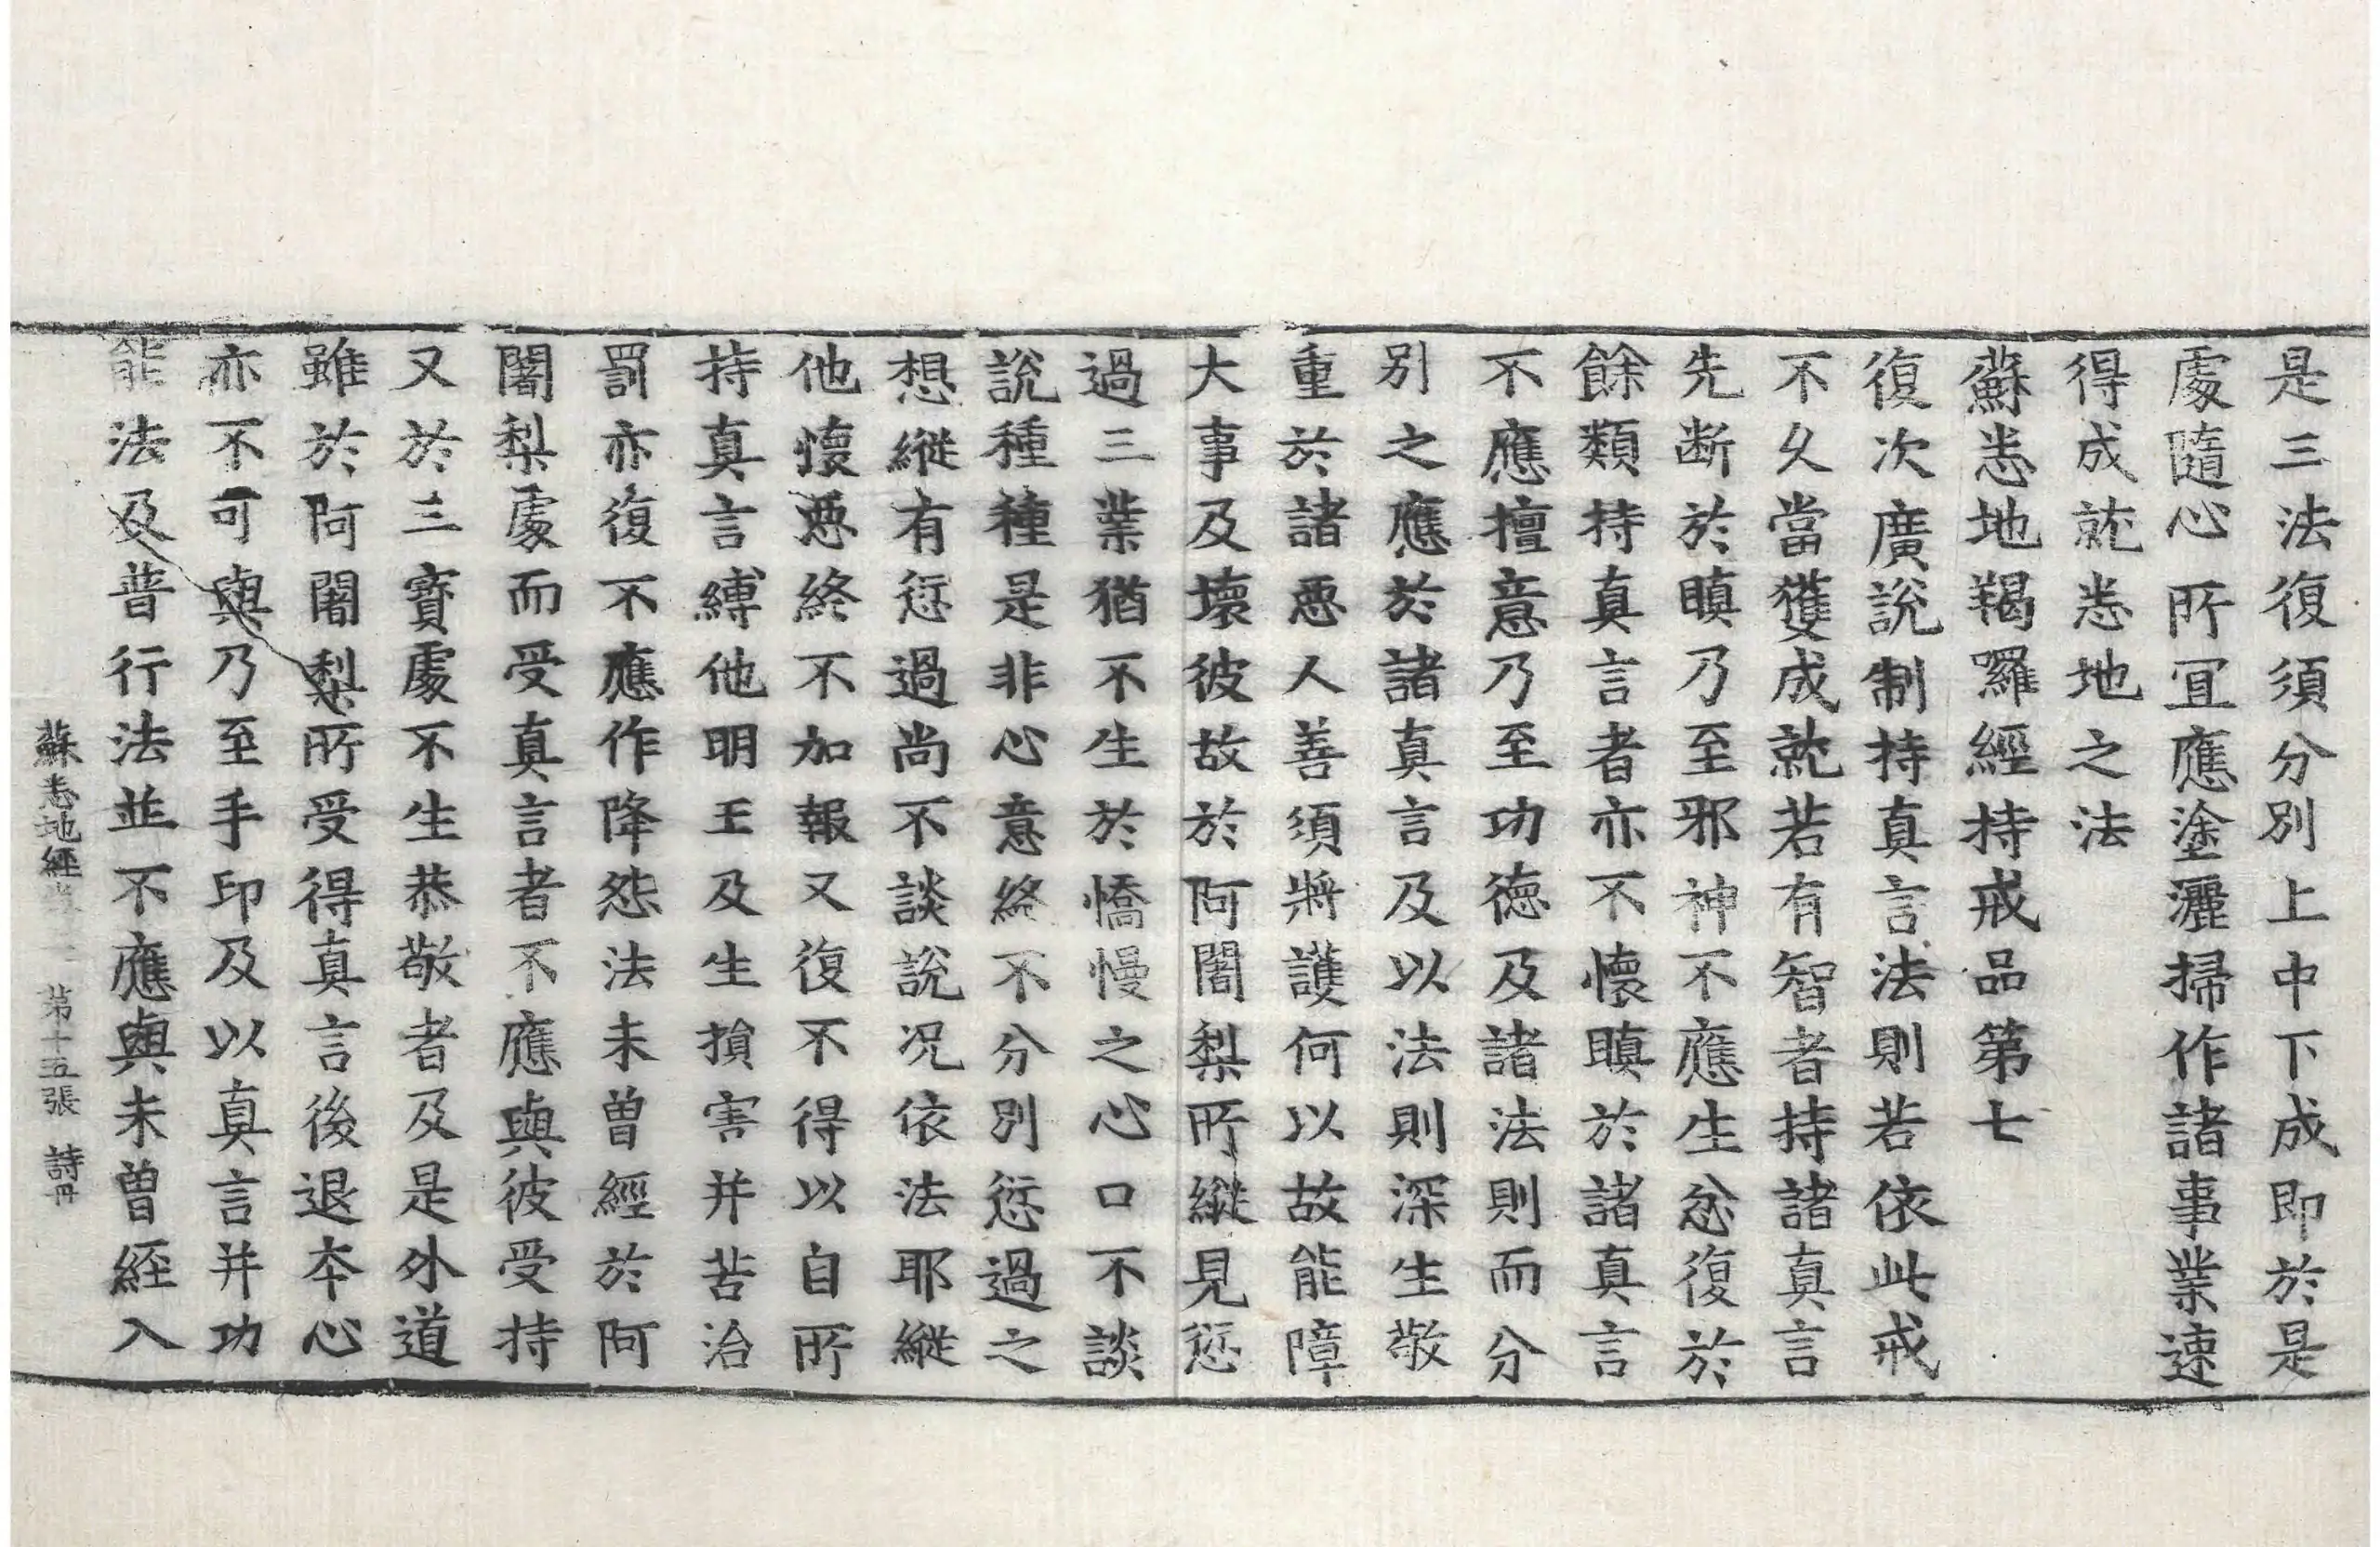 是三法復須分別上中下成即於是
處隨心所冝應塗灑掃作諸事業速
得成就悉地之法
蘇悉地羯囉經持戒品第七
復次廣說制持真言法則若依此戒
不久當獲成就若有智者持諸真言
先断於瞋乃至邪神不應生忿復於
餘類持真言者亦不懷瞋於諸真言
不應擅意乃至功德及諸法則而分
別之應於諸真言及以法則深生敬
重於諸惡人善須將護何以故能障
大事及壞彼故於阿闍梨所縱見愆
過三業猶不生於憍慢之心口不談
說種種是非心意終不分別愆過之
想縱有愆過尚不談說况依法耶縱
他懷惡終不加報又復不得以自所
持真言縛他明王及生損害并苦治
罰亦復不應作降怨法未曾經於阿
闍梨處而受真言者不應與彼受持
又於三寳處不生恭敬者及是外道
雖於阿闍梨所受得真言後退本心
亦不可與乃至手印及以真言并功
能法及普行法並不應與未曾經入
蘇悉地經 第十五張 詩冊